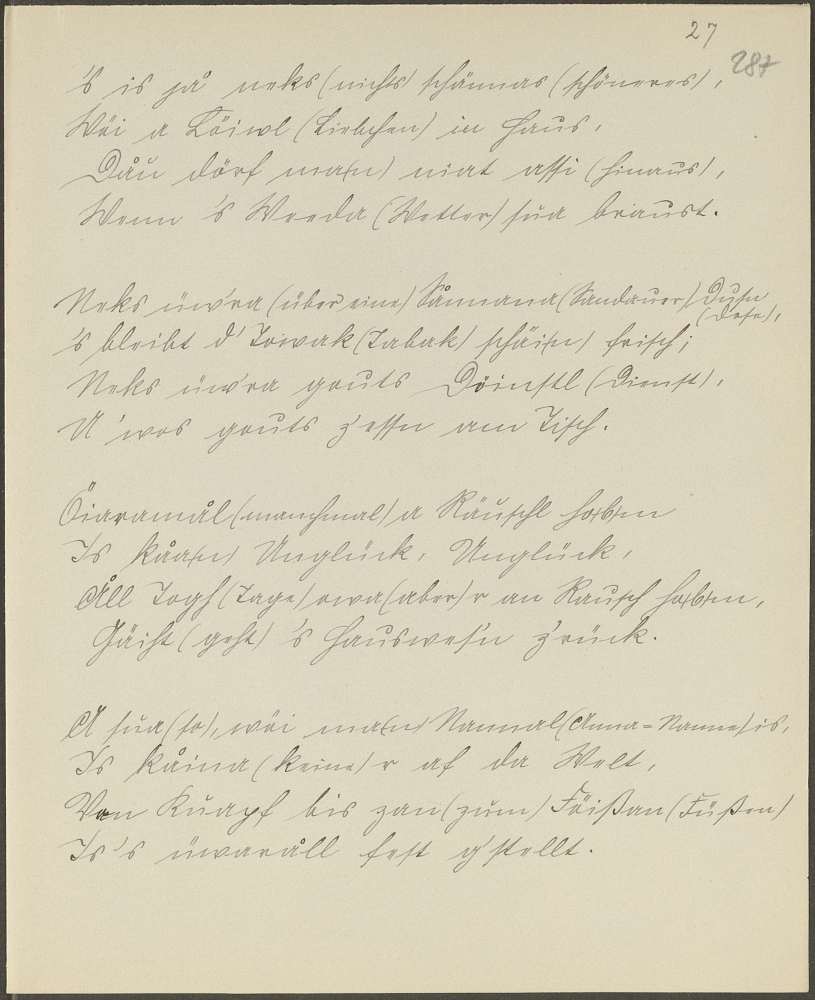 27
287
's is jå neks (nichts) schännas (schöneres),
Wöi a Löiwl (Liebchen) in Haus,
Dåu dörf ma(n) niat assi (hinaus),
Wenn 's Weeda (Wetter) súa braust.
Neks üw'ra (über eine) Såunana (Sandauer) Dusn
(Dose),
's bleibt d' Towak (Tabak) schäi(n) frisch;
Neks üw'ra gouts Döinstl (Dienst),
U 'wos gouts z'essn am Tisch.
Öiaramål (manchmal) a Räuschl ho(b)m
Is kåa(n) Unglück, Unglück,
Åll Togh (Tage) owa (aber) r an Rausch ho(b)m,
Gäiht (geht) 's Hauswes'n z'rück.
A súa (so), wöi ma(n) Nannal (Anna-Nanne) is,
Is kåina (keine) r af da Welt,
Van Kúapf bis zan (zum) Föißan (Füßen)
Is's üwaråll fest g'stellt.